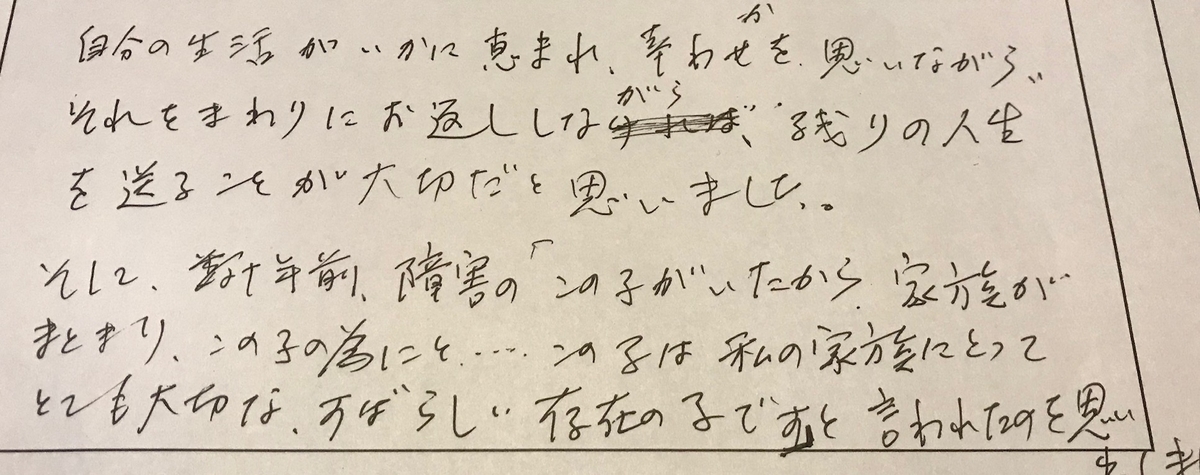 自分の生活がいかに恵まれ、幸わせかを思いながら、
それをまわりにお返ししながら、残りの人生
を送ることが大切だと思いました。
そして、数十年前、障害の「この子がいたから、家族が
まとまり、この子の為にと……この子は私の家族にとって
とても大切な、すばらしい存在の子ですと言われたのを思い